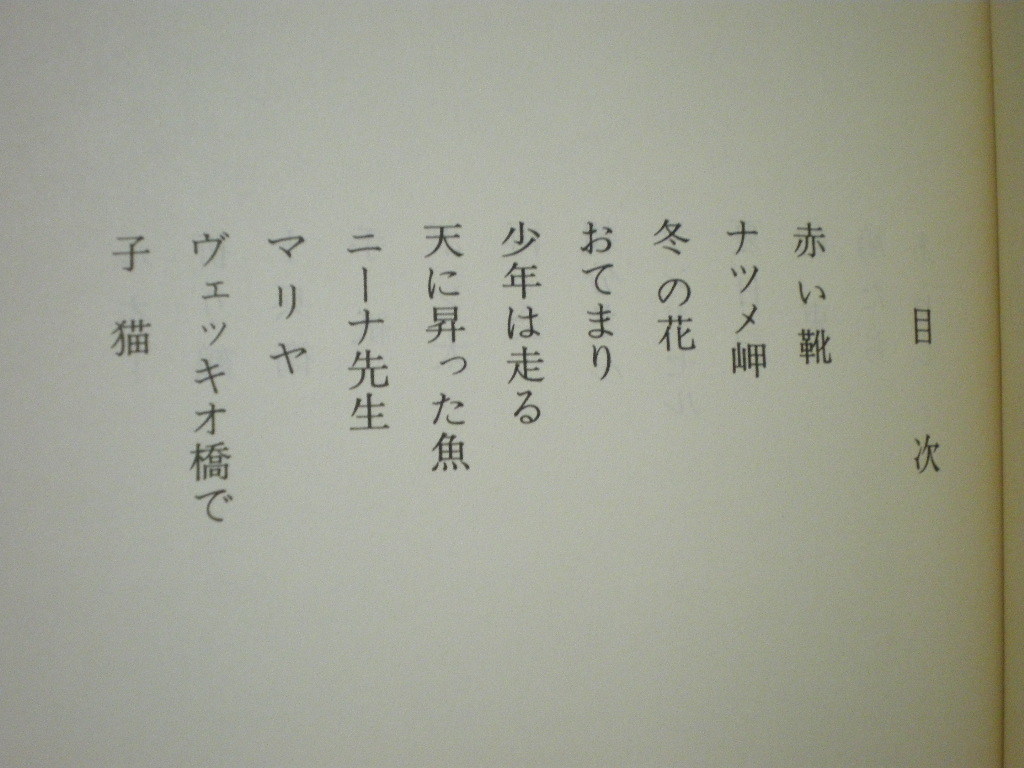 目次
赤い靴
ナツメ岬
冬の花
おてまり
少年は走る
天に昇った魚
ニーナ先生
マリヤ
ヴェッキオ橋で
子猫